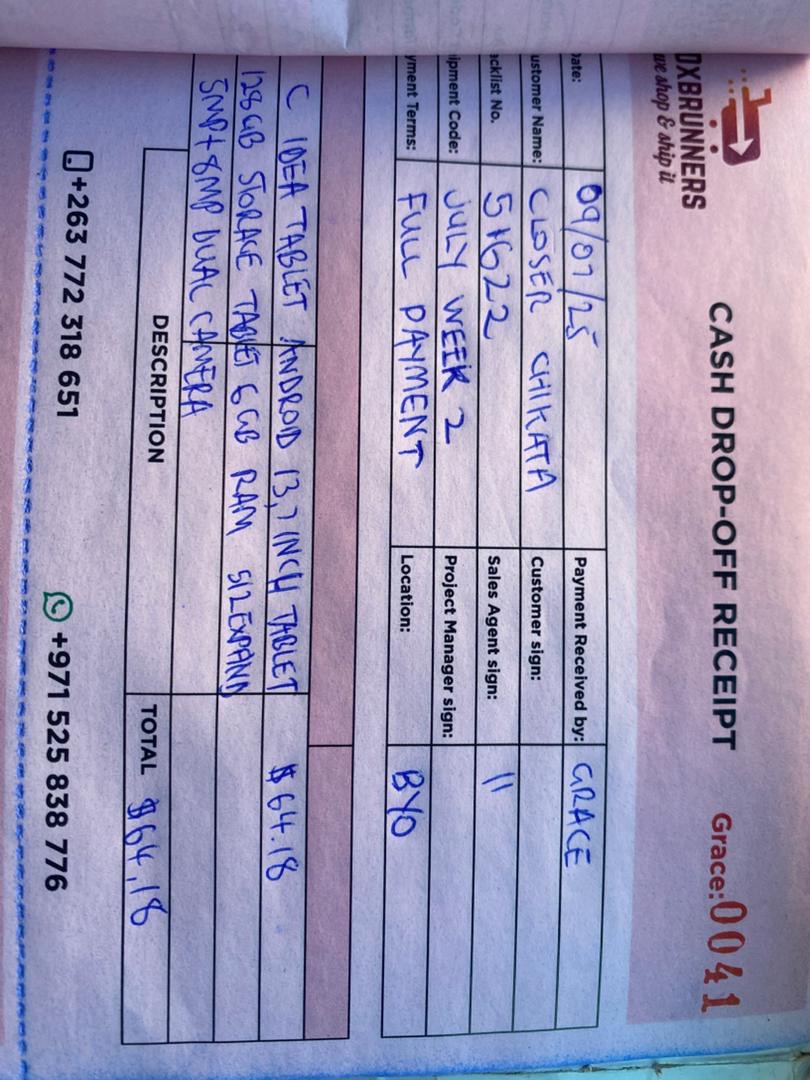 DXBRUNNERS
we shop & ship it
CASH DROP-OFF RECEIPT
Grace: 0041
Date: 09/07/25 Payment Received by: GRACE
ustomer Name: CLOSER CHIKATA Customer sign:
acklist No. 51622 Sales Agent sign: 11
ipment Code: JULY WEEK 2 Project Manager sign:
yment Terms: FULL PAYMENT Location: BYO
C IDEA TABLET ANDROID 13,7 INCH TABLET $64.18
128 GB STORAGE TABLET 6 GB RAM 512 EXPAND
5MP + 8MP DUAL CAMERA
DESCRIPTION TOTAL $64,18
+263 772 318 651 +971 525 838 776